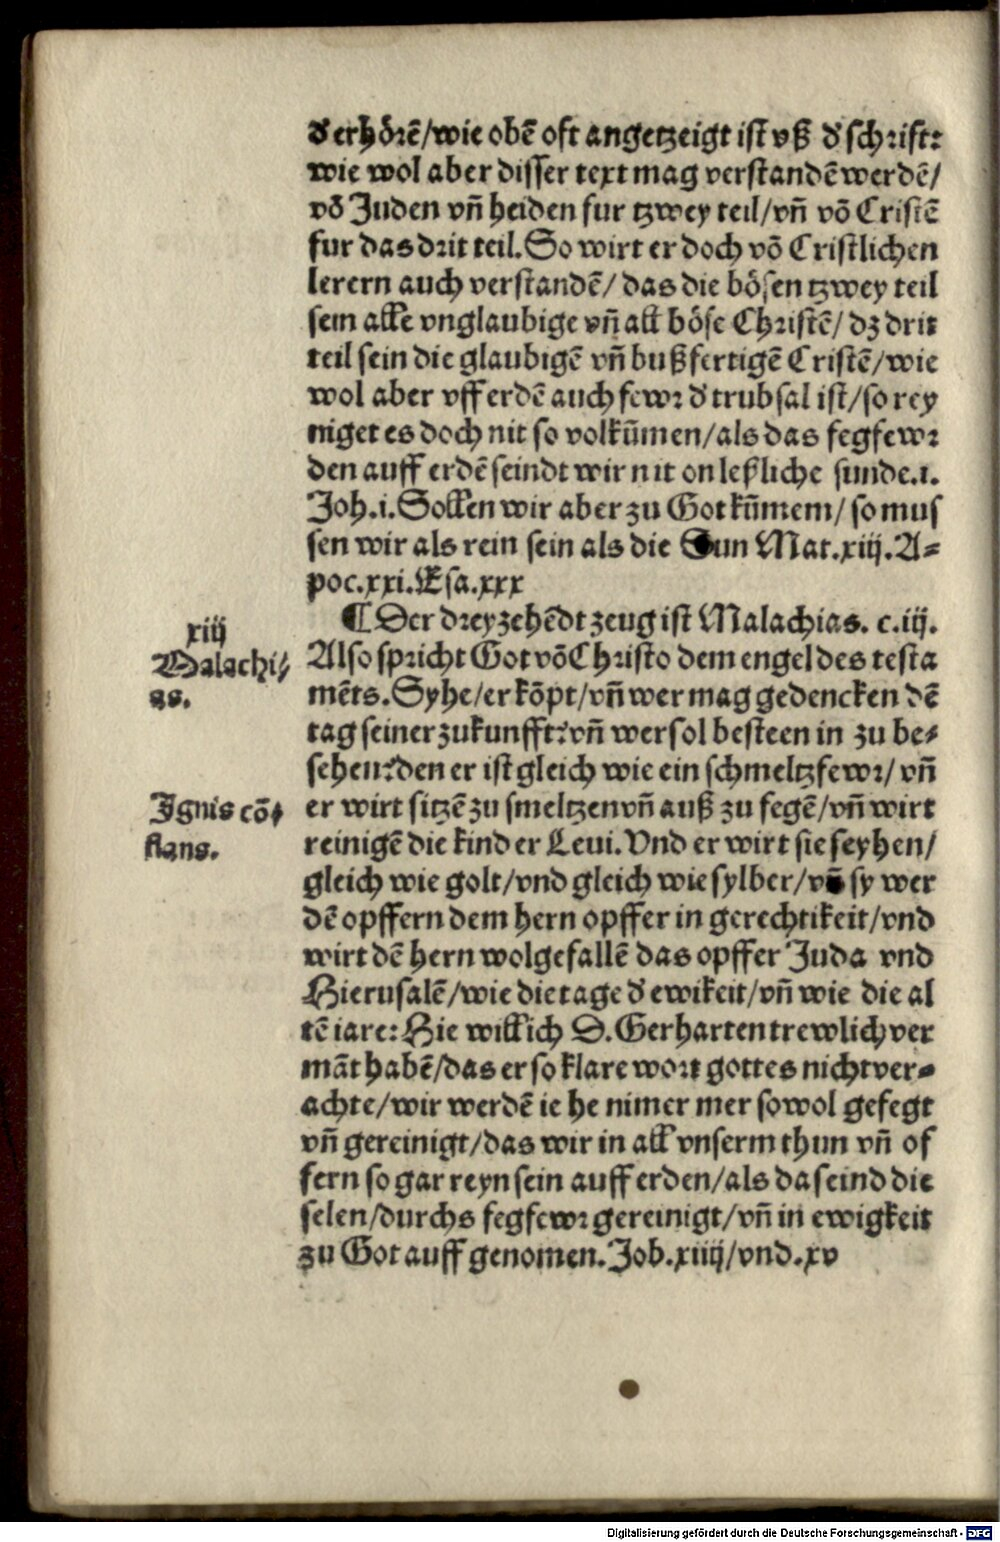 d' erhörē/wie obē oft angetzeigt ist vß d' schrift:
wie wol aber disser text mag verstandē werdē/
vō Juden vn̄ heiden fur tzwey teil/vn̄ vō Cristē
fur das drit teil. So wirt er doch vō Cristlichen
lerern auch verstandē/ das die bösen tzwey teil
sein alle vnglaubige vn̄ all böse Christē/ dz drit
teil sein die glaubigē vn̄ bußfertigē Cristē/wie
wol aber vff erdē auch fewr d' trubsal ist/so rey
niget es doch nit so volkūmen/als das fegfewr
den auff erdē seindt wir nit on leßliche sunde.1.
Joh.i. Sollen wir aber zu Got kūmem/ so mus
sen wir als rein sein als die Sun Mat.xiij. A=
poc.xxi. Esa.xxx
¶ Der dreyzehēdt zeug ist Malachias. c.iij.
xiij
Malachi/
as.
Also spricht Got vō Christo dem engel des testa
mēts. Syhe/er kōpt/vn̄ wer mag gedencken dē
tag seiner zukunfft? vn̄ wer sol besteen in zu be/
sehen? den er ist gleich wie ein schmeltzfewr/ vn̄
Ignis cō/
flans.
er wirt sitzē zu smeltzen vn̄ auß zu fegē/vn̄ wirt
reinigē die kinder Leui. Vnd er wirt sie seyhen/
gleich wie golt/vnd gleich wie sylber/vn̄ sy wer
dē opffern dem hern opffer in gerechtikeit/vnd
wirt dē hern wolgefallē das opffer Juda vnd
Hierusalē/wie die tage d' ewikeit/vn̄ wie die al
tē iare: Hie will ich D. Gerharten trewlich ver
māt habē/das er so klare wort gottes nicht ver=
achte/wir werdē ie he nimer mer so wol gefegt
vn̄ gereinigt/das wir in all vnserm thun vn̄ of
fern so gar reyn sein auff erden/als da seind die
selen/durchs fegfewr gereinigt/vn̄ in ewigkeit
zu Got auff genomen. Job.xiiij/vnd.xv
Digitalisierung gefördert durch die Deutsche Forschungsgemeinschaft - DFG